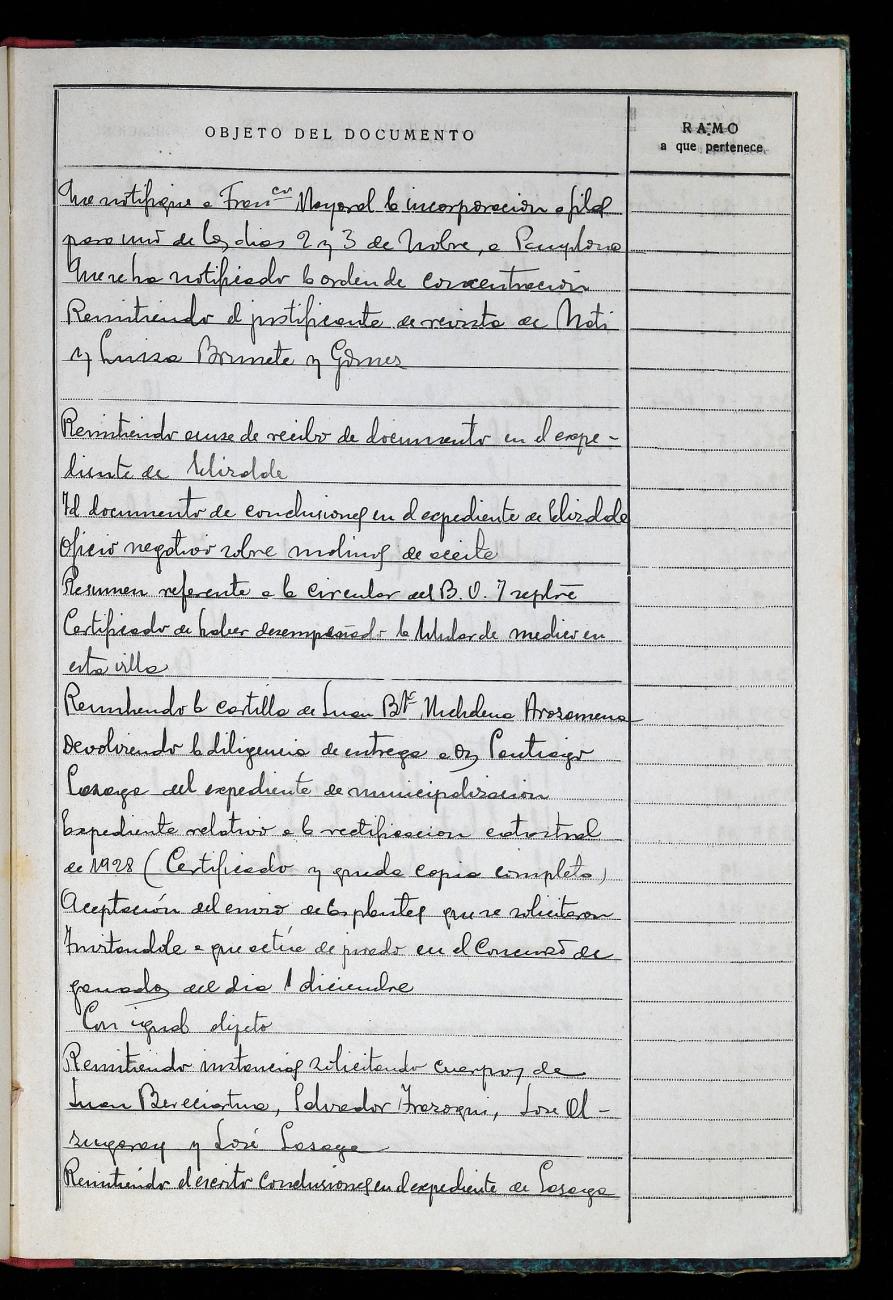 OBJETO DEL DOCUMENTO
RAMO
a que pertenece
Que notifique a Fran^co Mayoral la incorporacion a filas
para uno de los dias 2 y 3 de Nobre, a Pamplona
Que se ha notificado la orden de concentración
Remitiendo el justificante de revista de Nati
y Luisa Brunete y Gómez
Remitiendo acuse de recibo de documento en el expe-
diente de Elizalde
Id documento de conclusiones en el expediente de Elizalde
Oficio negativo sobre molinos de aceite
Resumen referente a la circular del B. O. 7 septbre
Certificado de haber desempeñado la titular de medico en
esta villa
Remitiendo la cartilla de Juan Bte Michelena Arozamena
Devolviendo la diligencia de entrega a Dn Santiago
Lasaga del expediente de municipalizacion
Expediente relativo a la rectificacion catastral
de 1928 (Certificado y queda copia completa)
Aceptación del envio de las plantas que se solicitaron
Invitandole a que actúe de jurado en el Concurso de
ganados del dia 1 diciembre
Con igual objeto
Remitiendo instancias solicitando cuerpos de
Juan Bereciartua, Salvador Irazoqui, Jose Ol-
zugaray y José Lasaga
Remitiendo el escrito conclusiones en el expediente de Lasaga